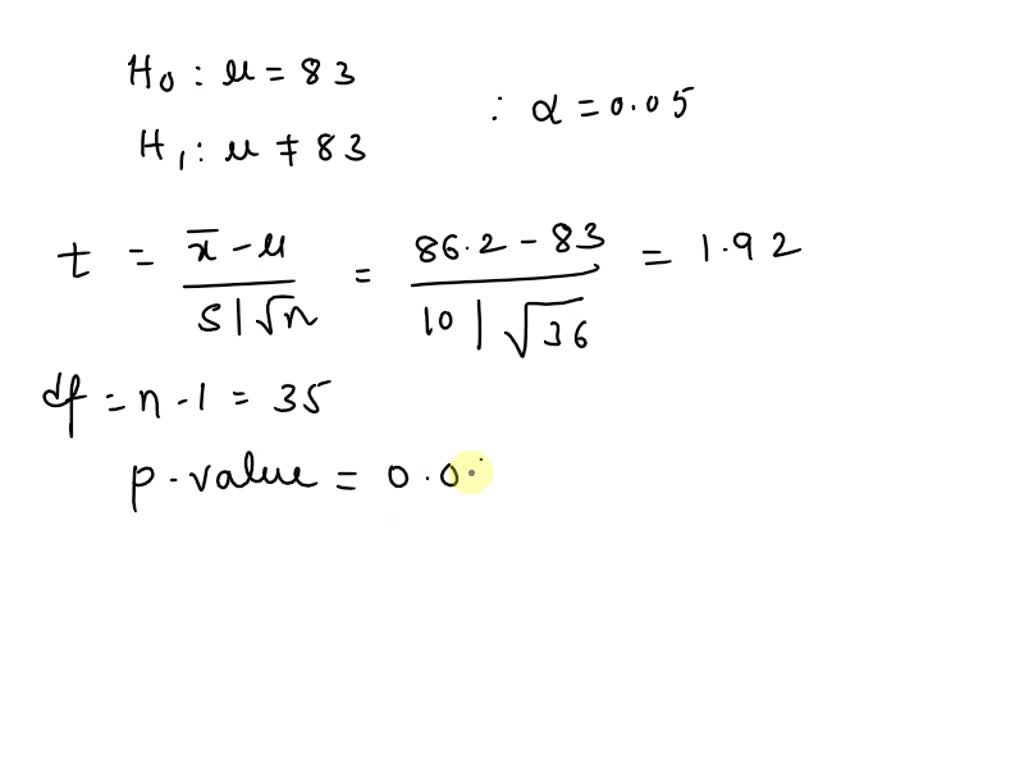 H₀ : μ = 83
: α = 0.05
H₁ : μ ≠ 83
t = x̄ - μ / s|√n = 86.2 - 83 / 10|√36 = 1.92
df = n - 1 = 35
p-value = 0.0